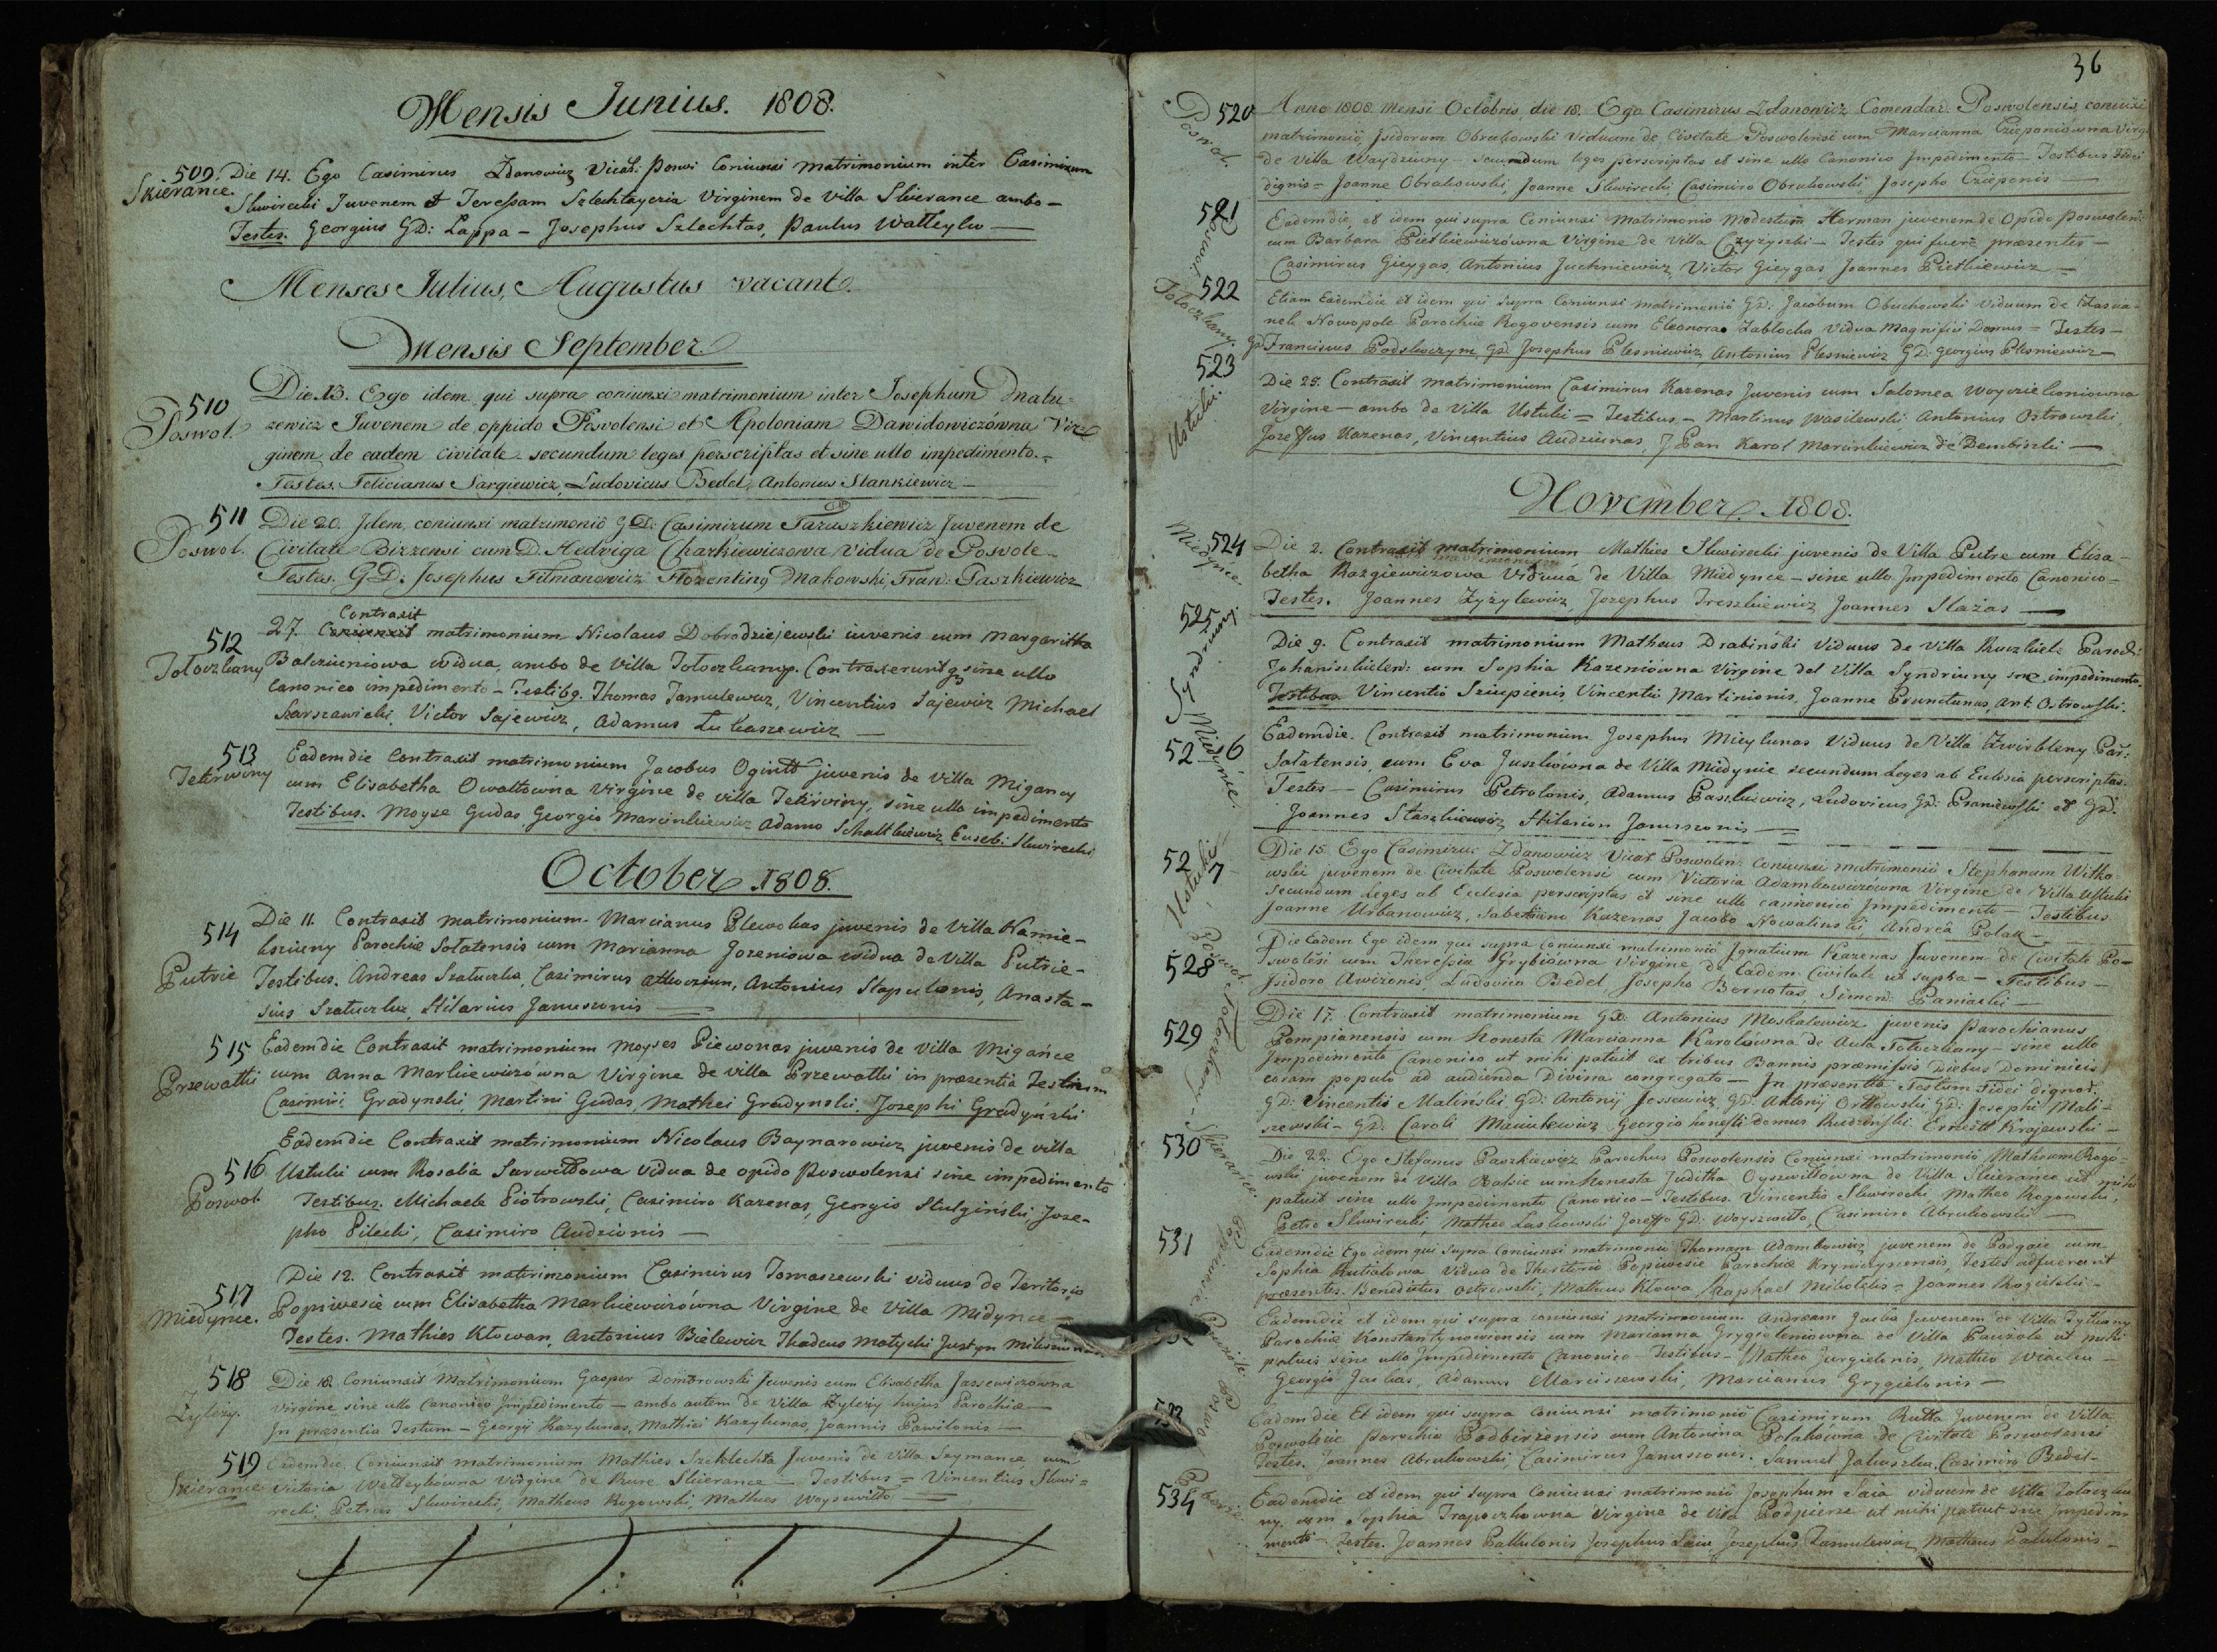 Mensis Junius. 1808.
509. Die 14. Ego Casimirus Zdanowicz Vicar: Poswi Coniunxi matrimonium inter Casimirum
Skierance.
Skwirecki Juvenem et Teressam Szlechtaycria Virginem de Villa Skierance ambo –
Testes. Georgius GD: Lappa – Josephus Szlechtas, Paulus Watteyku —
Menses Julius, Augustus vacant.
Mensis September.
510 Die 13. Ego idem qui supra coniunxi matrimonium inter Josephum
Poswol. zewicz Juvenem de oppido Posvolensi et Apoloniam Dawidowiczówna Vir-
ginem de eadem civitate secundum leges perscriptas et sine ullo impedimento. –
Testes. Felicianus Sargiewicz, Ludovicus Bedel, Antonius Stankiewicz –
511 Die 20. Idem coniunxi matrimonio GD: Casimirum Taruszkiewicz Juvenem de
Poswol. Civitate Birzensi cum D. Hedviga Charkiewiczowa vidua de Posvole –
Testes. GD: Josephus Filmanowicz Florentinus Makowski, Fran: Paszkiewicz
Contraxit
512 27. matrimonium Nicolaus Dobrodziejewski iuvenis cum Margaritha
Tołoczkany Balcziuniowa vidua, ambo de Villa Tołoczkany. Contraxerunt sine ullo
canonico impedimento – Testibus. Thomas Jamulewicz, Vincentius Sajewicz Michael
Szarszewicki, Victor Sajewicz, Adamus Lukaszewicz —
513 Eademdie Contraxit matrimonium Jacobus Ogintt juvenis de Villa Migancy
Tetirwiny cum Elisabetha Owattowna Virgine de villa Tetirviny, sine ullo impedimento
Testibus. Moyse Gudas Georgio Marcinkiewicz Adamo Schaltkiewicz Euseb: Skwirecki
October 1808.
514 Die 11. Contraxit matrimonium Marcianus Plewokas juvenis de Villa Kamie-
Parochiæ Sołatensis cum Marianna Jozeniowa vidua de Villa Putrie –
Putrie Testibus. Andreas Szatuczka, Casimirus Antonius Stapulonis, Anasta-
sius Szatuczka, Hilarius Januszonis —
515 Eademdie Contraxit matrimonium Moyses Piewonas juvenis de Villa Migańce
Przewatki cum Anna Markiewiczowna Virgine de villa Przewatki in præsentia Testium
Casimiri Gradynski, Martini Gudas, Mathei Gradynski, Josephi Gradyński
Eademdie Contraxit matrimonium Nicolaus Baynarowicz juvenis de villa
516 Ustuki cum Rosalia Sarwittowa vidua de opido Poswolensi sine impedimento
Poswol Testibus. Michaele Piotrowski, Casimiro Kazenas, Georgio Stulgiński Jose-
pho Pilecki, Casimiro Audzionis —
Die 12. Contraxit matrimonium Casimirus Tomaszewski viduus de Teritorio
517 Popiwesie cum Elisabetha Markiewiczówna Virgine de Villa Midynce –
Miedynce. Testes. Mathies Kłowan, Antonius Bielewicz Thadeus Matycki Justyn
518 Die 18. Coniunxit Matrimonium Gasper Dombrowski Juvenis cum Elisabetha Jassewiczowna
Zyleży. Virgine sine ullo Canonico Impedimento – ambo autem de Villa Zyleży hujus Parochiæ –
In præsentia Testum – Georgij Kazylunas, Mathiei Kazylunas, Joannis Pawilonis —
519 Eademdie Coniunxit matrimonium Mathies Szleklechta Juvenis de Villa Szymance cum
Skierance Victoria Welteykówna Virgine de Rure Skierance – Testibus = Vincentius Skwi-
recki, Petrus Skwirecki, Matheus Rogowski, Matheus Woyswitto —
36
520 Anno 1808. Mensi Octobris die 18. Ego Casimirus Zdanowicz Comendar: Poswolensis, coniunxi
Poswol. matrimonio Isidorum Obrukowski Viduum de Civitate Poswolensi cum Marcianna Czieponiówna Virg.
de Villa Waydziuny – secundum leges perscriptas et sine ullo Canonico Impedimento – Testibus Fidei
dignis = Joanne Obrukowski, Joanne Skwirecki, Casimiro Obrukowski, Josepho Czieponis —
521 Eademdie, et idem qui supra Coniunxi Matrimonio Modestum Herman juvenem de Opido Poswolen:
Poswol. cum Barbara Pietkiewiczówna Virgine de Villa Czyżyszki – Testes qui fuere præsentes –
Casimirus Gieygas, Antonius Juchniewicz, Victor Gieygas Joannes Pietkiewicz —
522 Etiam Eademdie et idem qui supra Coniunxi matrimonio GD: Jacobum Obuchowski Viduum de
Tołoczkany. Nowopole Parochiæ Rogovensis cum Eleonora Zabłocka Vidua Magnifici Domus = Testes –
GD: Franciscus GD: Josephus Plesniewicz, Antonius Plesniewicz GD: Georgius Plesniewicz —
523 Die 25. Contraxit matrimonium Casimirus Kazenas Juvenis cum Salomea
Ustuki. Virgine – ambo de Villa Ustuki = Testibus – Martinus Wasilewski, Antonius Ostrowski,
Jozeffus Kazenas, Vincentius Audziunas, J Pan Karol Marcinkiewicz de Dembiszki —
November. 1808.
524 Die 2. Contraxit matrimonium Mathies Skwirecki juvenis de Villa Putre cum Elisa-
Miedynce. betha Razgiewiczowa Vidua de Villa Miedynce – sine ullo Impedimento Canonico –
Testes. Joannes Zyżylewicz, Josephus Treszkiewicz Joannes Slażas —
525 Die 9. Contraxit matrimonium Matheus Drabiński Viduus de Villa Paroch:
Syndriuny. Johaniszkielen: cum Sophia Kazeniówna Virgine del Villa Syndriuny sne impedimento.
Testibus Vincentio Sziupienis, Vincentio Martinionis, Joanne Prunctunas, Ant. Ostrowski.
526 Eademdie. Contraxit matrimonium Josephus Micylunas Viduus de Villa Zwirbleny Par:
Miedynie. Sałatensis, cum Eva Juszkówna de Villa Miedynie secundum Leges ab Eclesia perscriptas.
Testes — Casimirus Petrolonis, Adamus Paszkiewicz, Ludovicus GD: et GD:
Joannes Staszkiewicz, Hilarion Januszonis —
527 Die 15. Ego Casimirus Zdanowicz Vicar Poswolen: coniunxi matrimonio Stephanum Witko-
Ustuki. wski juvenem de Civitate Poswolensi cum Victoria Adamkowiczówna Virgine de Villa Ustuki
Secundum Leges ab Ecclesia perscriptas et sine ullo canonico Impedimento – Testibus.
Joanne Urbanowicz, Kazenas Jacobo Nowaliński, Andrea Polak –
Die Eadem Ego idem qui supra Coniunxi matrimonio Ignatium Kazenas Juvenem de Civitate Po-
528 swolēsi cum Theressia Grybiówna Virgine de Eadem Civitate ut supra – Testibus –
Poswol. Isidoro Awiżonis, Ludovico Bedel, Josepho Bernotas, Simone Paniacki —
Die 17. Contraxit matrimonium GD: Antonius Moskalewicz juvenis Parochianus
529 Pompianensis cum Honesta Marcianna Karolowna de Aula Tołoczkany – sine ullo
Tołoczkany – Impedimento Canonico ut mihi patuit ex tribus Bannis præmissis Diebus Dominicis
coram populo ad audienda Divina congregato — In præsentia Testium Fidei dignor.
GD: Vincentii Malinski GD: Antonij Jossewicz GD: Antonij Ortłowski GD: Josephi Mali-
szewski – GD: Caroli Georgio honesti domus Ernestt Krajewski –
530 Die 22. Ego Stefanus Paszkiewicz Parochus Poswolensis Coniunxi matrimonio Matheum Rogo-
Skierance. wski juvenem de Villa cum Honesta Juditha Oyszwiłtówna de Villa Skierańce ut mihi
patuit sine ullo Impedimento Canonico – Testibus. Vincentio Skwirecki, Matheo Rogowski,
Petro Skwirecki, Matheo Laskowski Joseffo GD: Woyszwitto, Casimiro Abrukowski —
531 Eademdie Ego idem qui supra Coniunxi matrimonio Thomam Adamkowicz juvenem de Podgaie cum
Popiwesie Sophia Vidua de Theritorio Popiwesie Parochiæ Kryniczyscensis, Testes adfuerunt
præsentes. Benedictus Ostrowski, Matheus Kłowa, Raphael = Joannes
Eademdie et idem qui supra coniunxi matrimonium Andream Juvenem de Villa
Pauzole. Parochiæ Konstantynowiensis cum Marianna Grygieloniowna de Villa Pauzole ut mihi
patuit sine ullo Impedimento Canonico – Testibus – Matheo Jurgielonis, Matheo
Georgio Adamus Marciszewski, Marcianus Grygielonis —
533 Eademdie Et idem qui supra coniunxi matrimonio Casimirum Rutta Juvenem de Villa
Poswol. Parochia Podbirzensis cum Antonina Polakowna de Civitate Poswolensi
Testes. Joannes Abrukowski, Casimirus Januszonis. Samuel Jakuszka, Casimirus Bedel –
534 Eademdie et idem qui supra Coniunxi matrimonio Josephum Saia viduum de Villa Tołoczka-
ny. cum Sophia Virgine de Villa Podpierse ut mihi patuit sne Impedim-
mento – Testes. Joannes Pallulonis Josephus Saia Josephus Jamulewicz Matheus Palulonis –